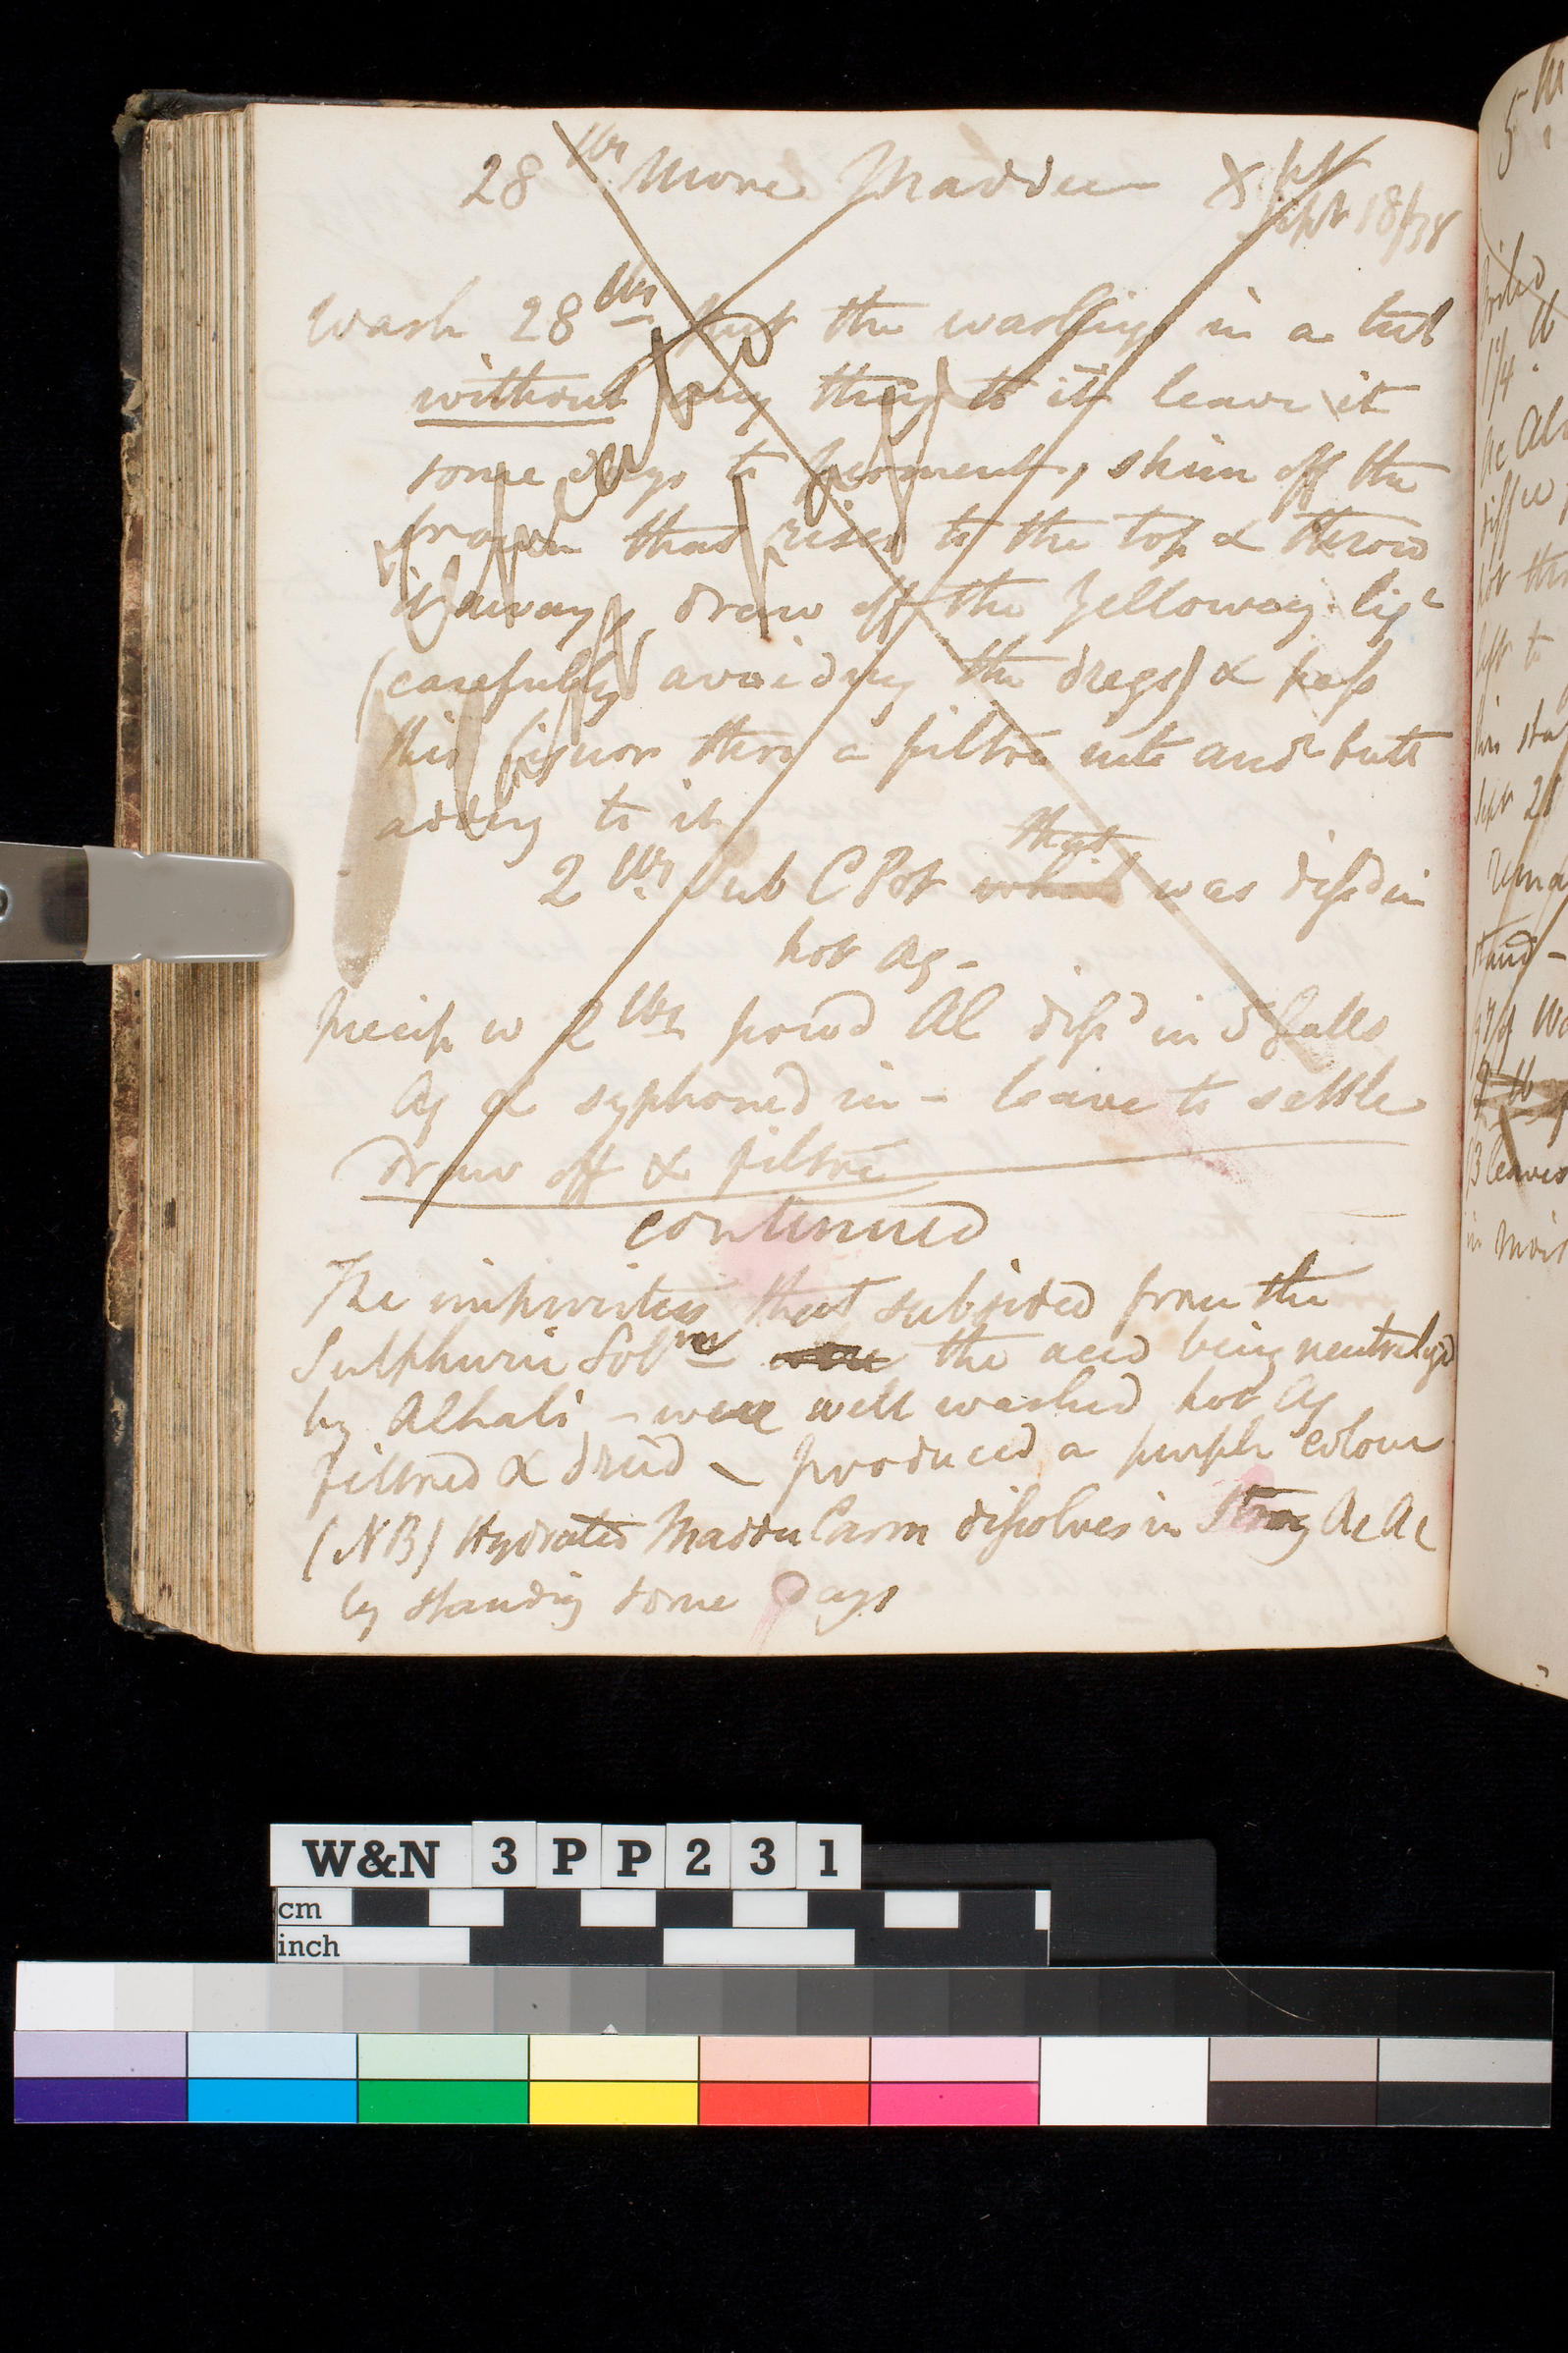 28 lbs More Madder
Sept 18/38
Wash 28 lbs put the washings in a tub
without any thing to it leave it
some days to ferment, skim off the
that rises to the top & throw
it away, draw off the Yelloway liqr
(carefully avoiding the dregs) & pass
this liquor thro a filtre into anor butt
adding to it
that
2 lbs Sub C Pot which was dissd in
hot Aq -
precip w 2 lbs powd Al dissd in 5 Galls
Aq & syphoned in - leave to settle
draw off & filtre
continued
The impurities that subsided from the
Sulphuric Solm were the acid being neutralyzd
by Alkali - were well washed hot Aq
filtred & dried - produced a purple colour
(NB) Hydrated Madder Carm dissolves in Strong Ac Ac
by standing some Days
5
1/4
Ac
to
Sept 28
stand -
leaves
in
W&N 3PP231
cm
inch